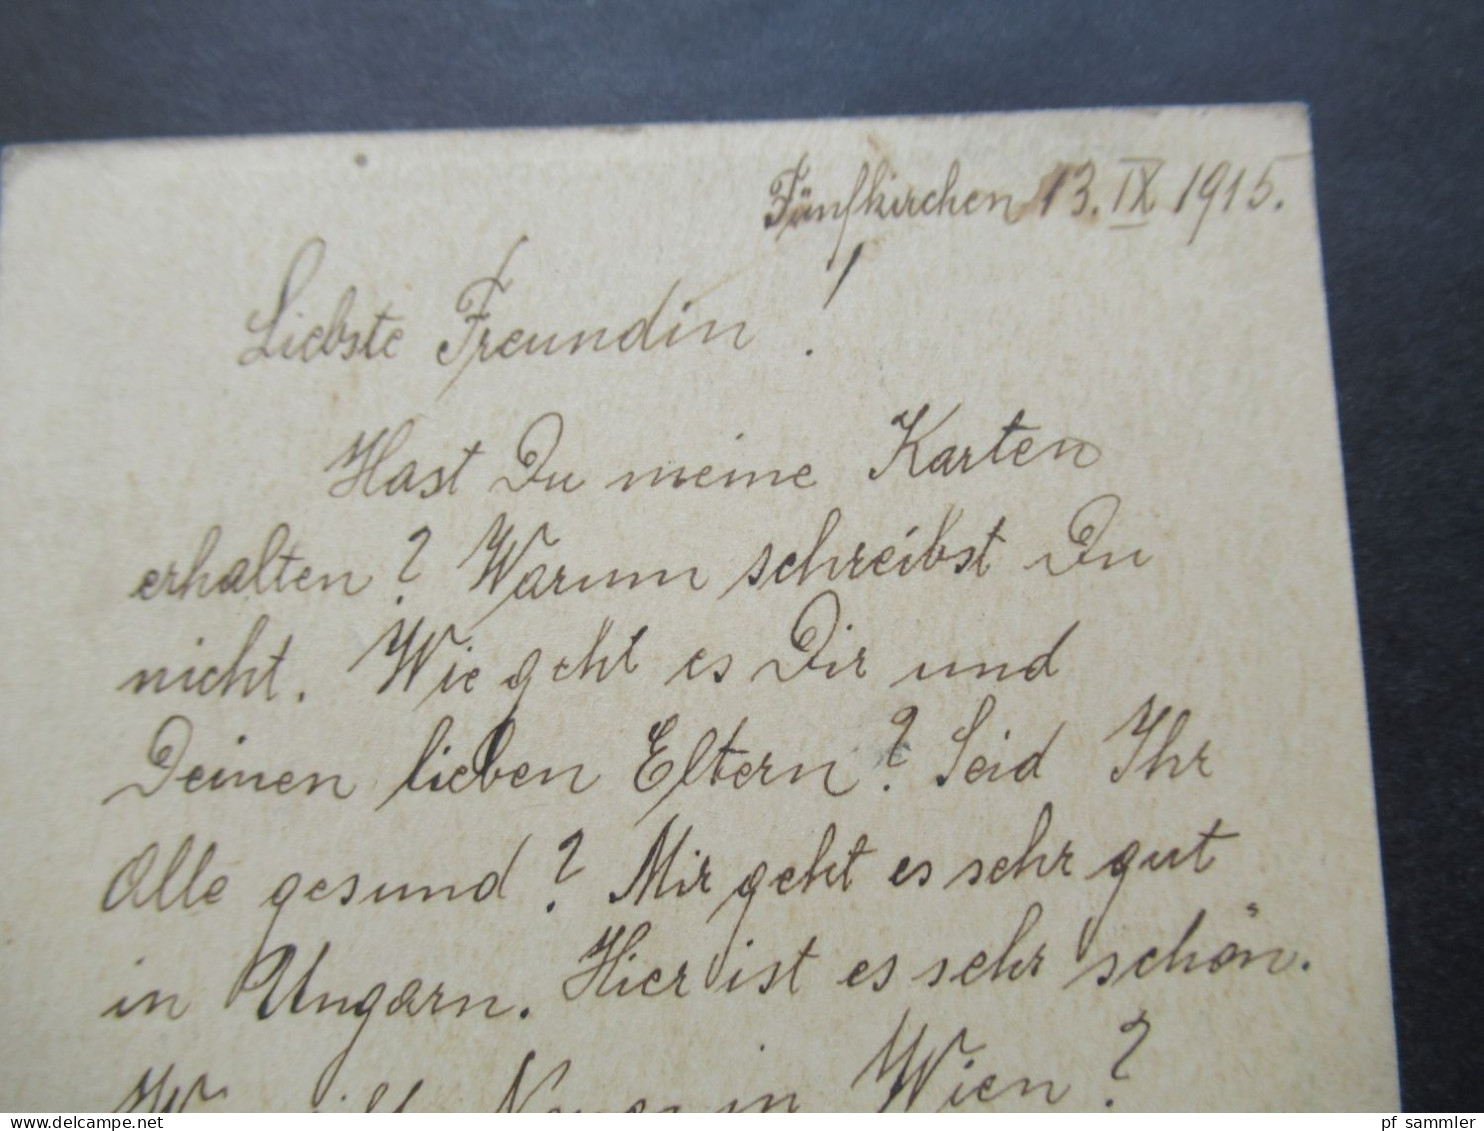 Fünfkirchen 13. IX 1915.
Liebste Freundin !
Hast Du meine Karten
erhalten? Warum schreibst Du
nicht. Wie geht es Dir und
Deinen lieben Eltern? Seid Ihr
Alle gesund? Mir geht es sehr gut
in Ungarn. Hier ist es sehr schön.
in Wien?
www.delcampe.net
pf_sammler